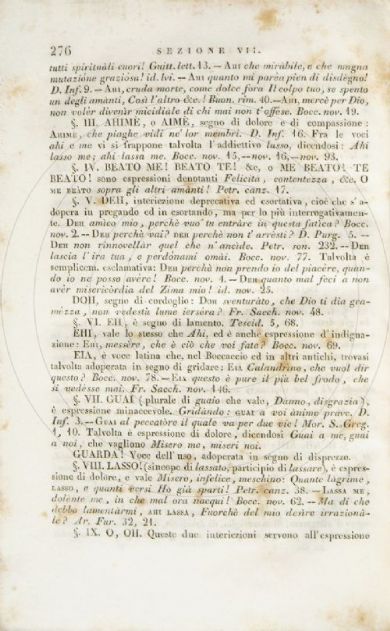 276 SEZIONE VII.
tutti spirituàli cuori! Guitt. lett. 13. — Ahi che miràbile, e che magna
mutazióne graziósa! id. ivi. — Ahi quanto mi parea pien di disdégno!
D. Inf. 9. — Ahi, cruda morte, come dolce fora Il colpo tuo, se spento
un degli amànti, Così l'altro &c.! Buon. rim. 40. — Ahi, mercè per Dio,
non volér divenìr micidiàle di chi mai non t'offése. Bocc. nov. 19.
§. III. AHIME, o AIMÈ, segno di dolore e di compassione:
Ahime, che piaghe vidi ne' lor membri. D. Inf. 16. Fra le voci
ahi e me vi si frappone talvolta l'addiettivo lasso, dicendosi: Ahi
lasso me; ahi lassa me. Bocc. nov. 15, — nov. 16, — nov. 93.
§. IV. BEATO ME! BEATO TE! &c, o ME BEATO! TE
BEATO! sono espressioni denotanti Felicità, contentezza, &c. O
me beato sopra gli altri amànti! Petr. canz. 17.
§. V. DEH, interiezione deprecativa ed esortativa, cioè che s'a-
dopera in pregando ed in esortando, ma per lo più interrogativamen-
te. Deh amico mio, perchè vuo' tu entràre in questa fatìca? Bocc.
nov. 2. — Deh perchè vai? deh perchè non t'arrèsti? D. Purg. 5. —
Deh non rinnovellàr quel che n'ancìde. Petr. son. 232. — Deh
lascia l'ira tua, e perdónami omài. Bocc. nov. 77. Talvolta è
semplicem. esclamativa: Deh perchè non prendo io del piacére, quan-
do io ne posso avére! Bocc. nov. 4. — Deh quanto mal feci a non
avér misericòrdia del Zima mio! id. nov. 25.
DOH, segno di cordoglio: Doh sventuràto, che Dio ti dia gra-
mézza, non vedestù lume iersèra? Fr. Sacch. nov. 48.
§. VI. EH, è segno di lamento. Teseid. 5, 68.
EHI, vale lo stesso che Ahi, ed è anche espressione d'indigna-
zione: Ehi, messère, che è ciò che voi fate? Bocc. nov. 69.
EIA, è voce latina che, nel Boccaccio ed in altri antichi, trovasi
talvolta adoperata in segno di gridare: Eia Calandrino, che vuol dir
questo? Bocc. nov. 78. — Eia questo è pure il più bel frodo, che
si vedesse mai. Fr. Sacch. nov. 146.
§. VII. GUAI (plurale di guaio che vale, Danno, disgrazia),
è espressione minaccevole. Gridàndo: guai a voi ànime prave. D.
Inf. 3. — Guai al peccatóre il quale va per due vie! Mor. S. Greg.
1, 10. Talvolta è espressione di dolore, dicendosi Guai a me, guai
a noi, che vagliono Misero me, miseri noi.
GUARDA! Voce dell'uso, adoperata in segno di disprezzo.
§. VIII. LASSO! (sincope di lassato, participio di lassare), è espres-
sione di dolore, e vale Misero, infelice, meschino: Quante lagrime,
lasso, e quanti versi Ho già sparti! Petr. canz. 38. — Lassa me,
dolénte me, in che mal ora nacqui! Bocc. nov. 62. — Ma di che
debbo lamentàrmi, ahi lassa, Fuorchè del mio desìre irrazionà-
le? Ar. Fur. 32, 21.
§. IX. O, OH. Queste due interiezioni servono all'espressione